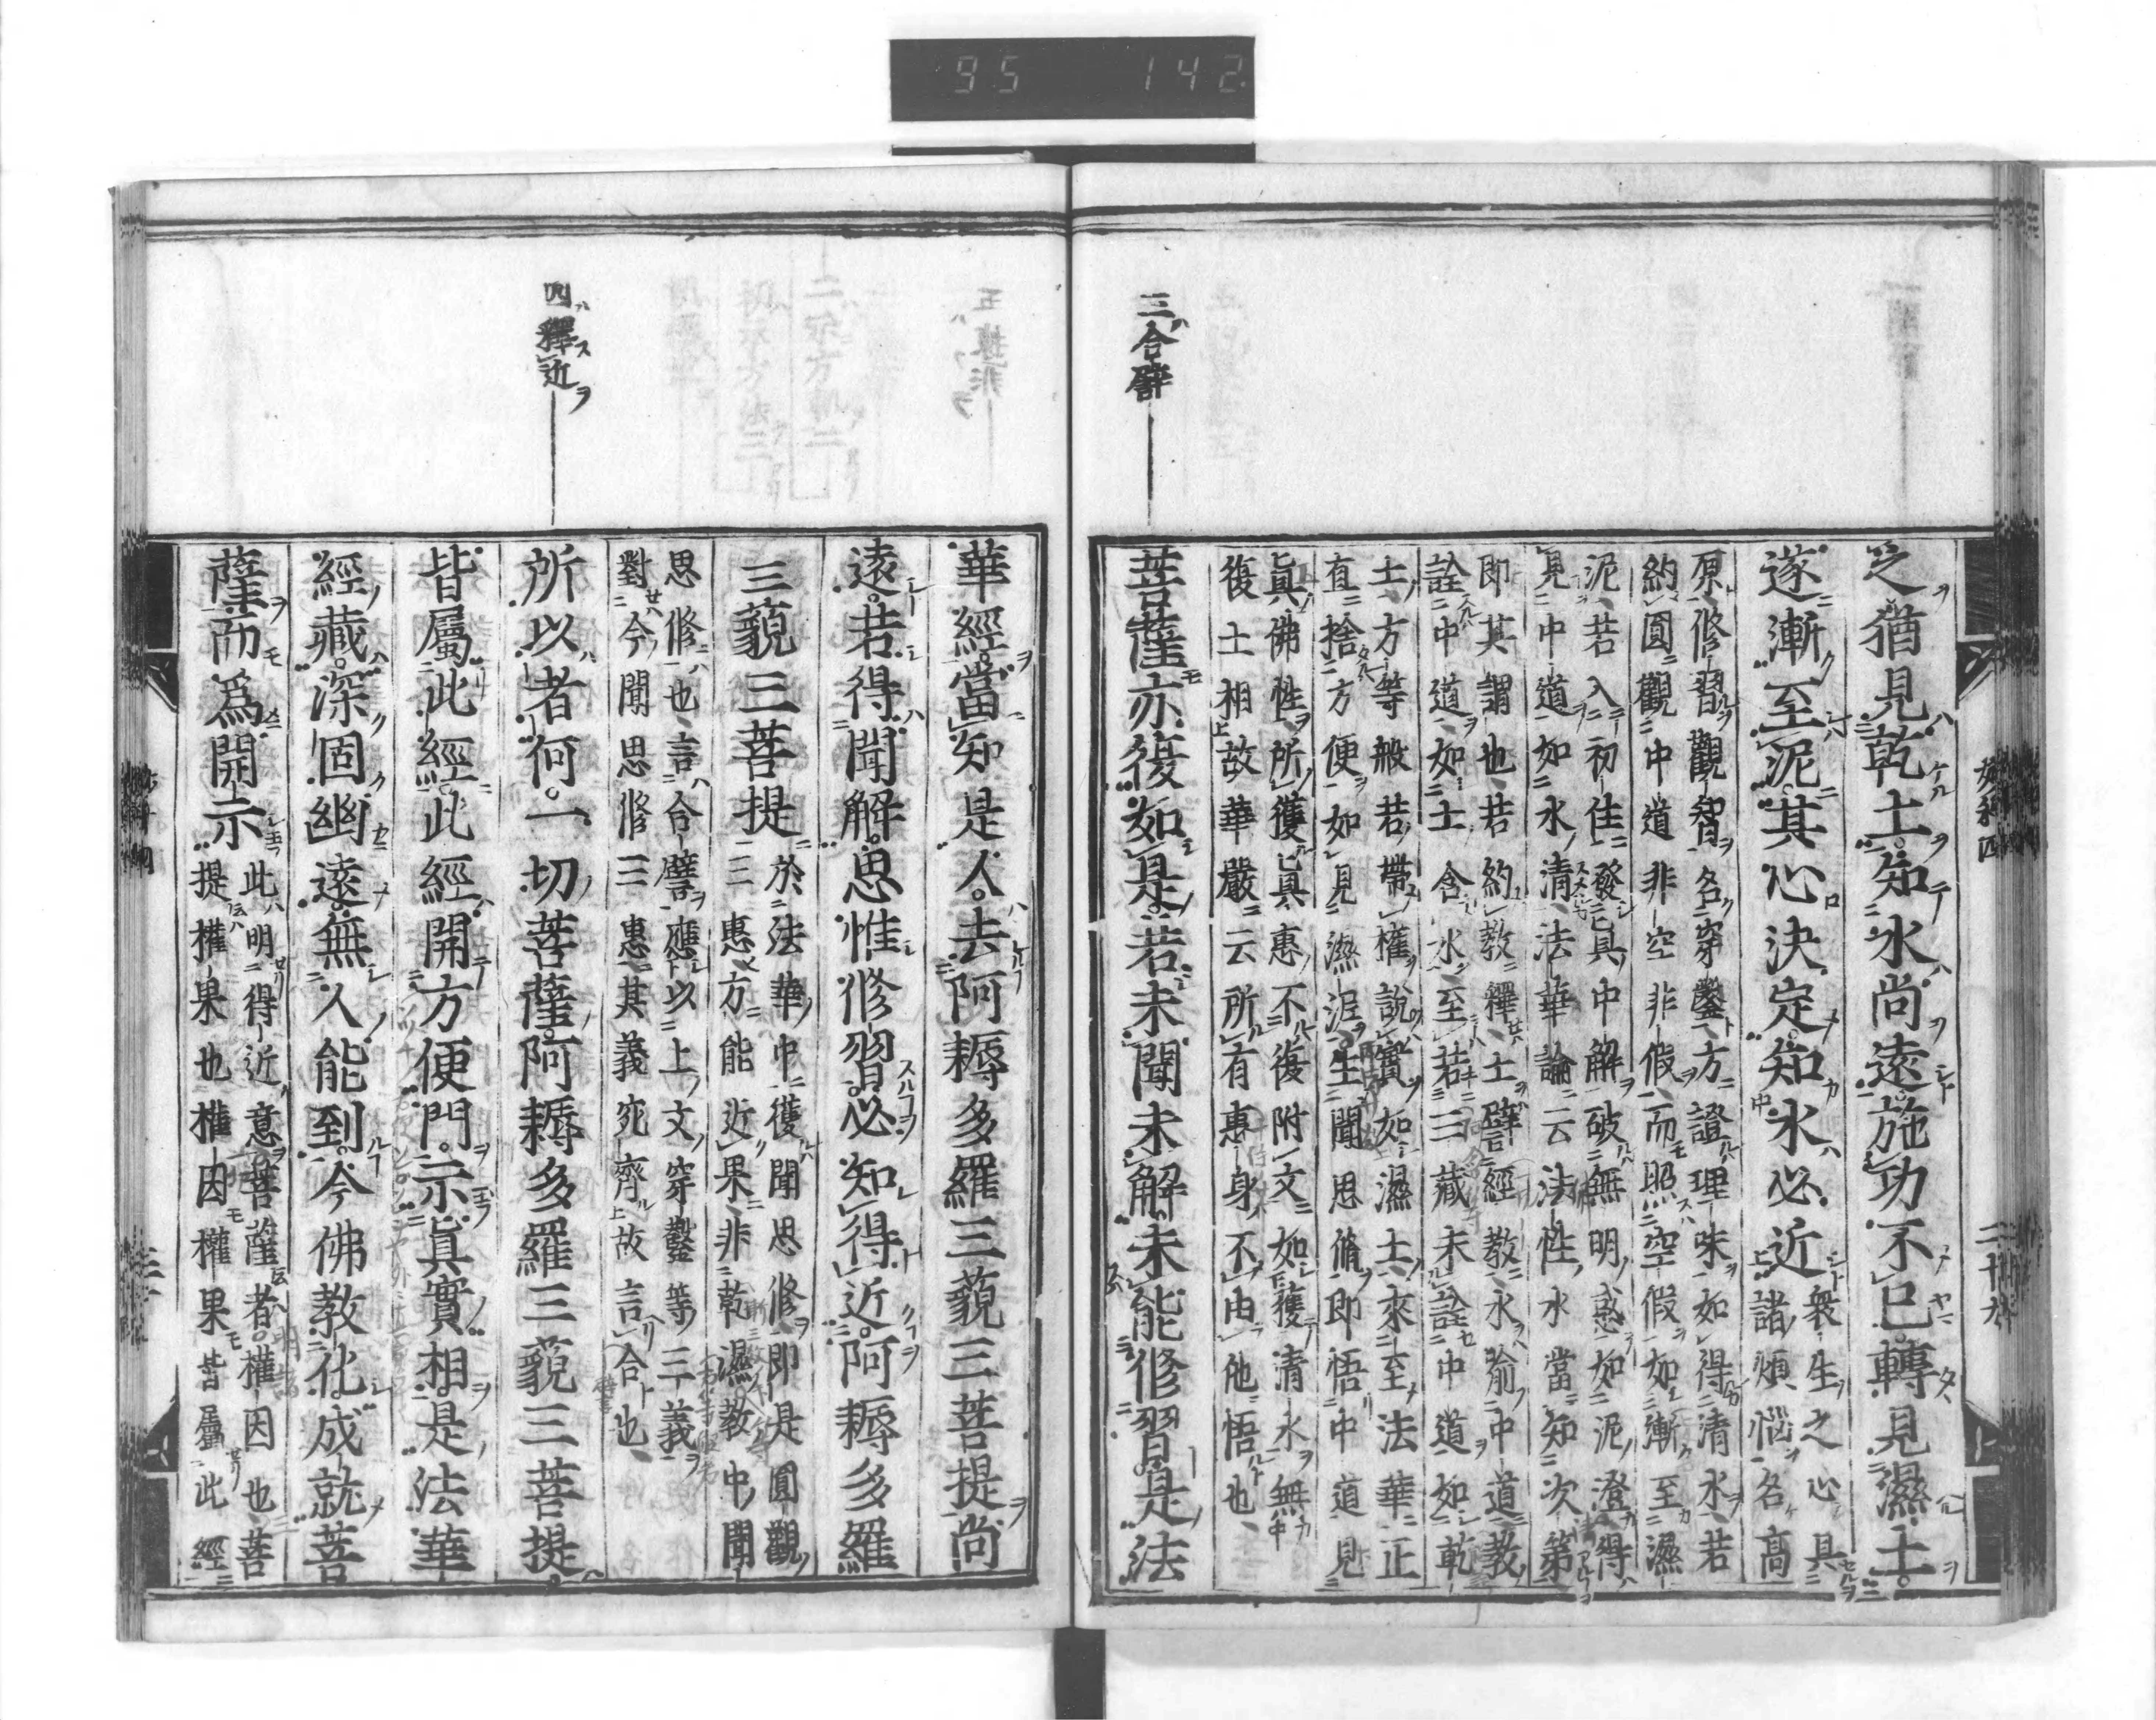 95 142
三合譬
之猶見乾土知水尚遠施功不已轉見濕土
遂漸至泥其心決定知水必近衆生之心具
諸煩惱名高
原修習觀智名穿鑿方證理味如得清水若
約圓觀中道非空非假而照空假如漸至濕
泥若入初住發眞中解破無明惑如泥澄得
見中道如水清法華論云法性水當知次第
即其謂也若約教釋土譬經教水喻中道教
詮中道如土含水至若三藏未詮中道如乾
土方等般若帶權說實如濕土來至法華正
直捨方便如見濕泥生聞思脩即悟中道見
眞佛性所獲眞惠不復附文如獲清水無中
復土相故華嚴云所有惠身不由他悟也
菩薩亦復如是若未聞未解未能修習是法
二十九
華經當知是人去阿耨多羅三藐三菩提尚
遠若得聞解思惟修習必知得近阿耨多羅
三藐三菩提於法華中獲聞思修即是圓觀
三惠方能近果非乾濕教中聞
思修也言合譬應以上文穿鑿等三義
對今聞思修三惠其義宛齊故言合也
四釋近
所以者何一切菩薩阿耨多羅三藐三菩提
皆屬此經此經開方便門示眞實相是法華
經藏深固幽遠無人能到今佛教化成就菩
薩而爲開示此明得近意菩薩者權因也菩
提權果也權因權果皆屬此經